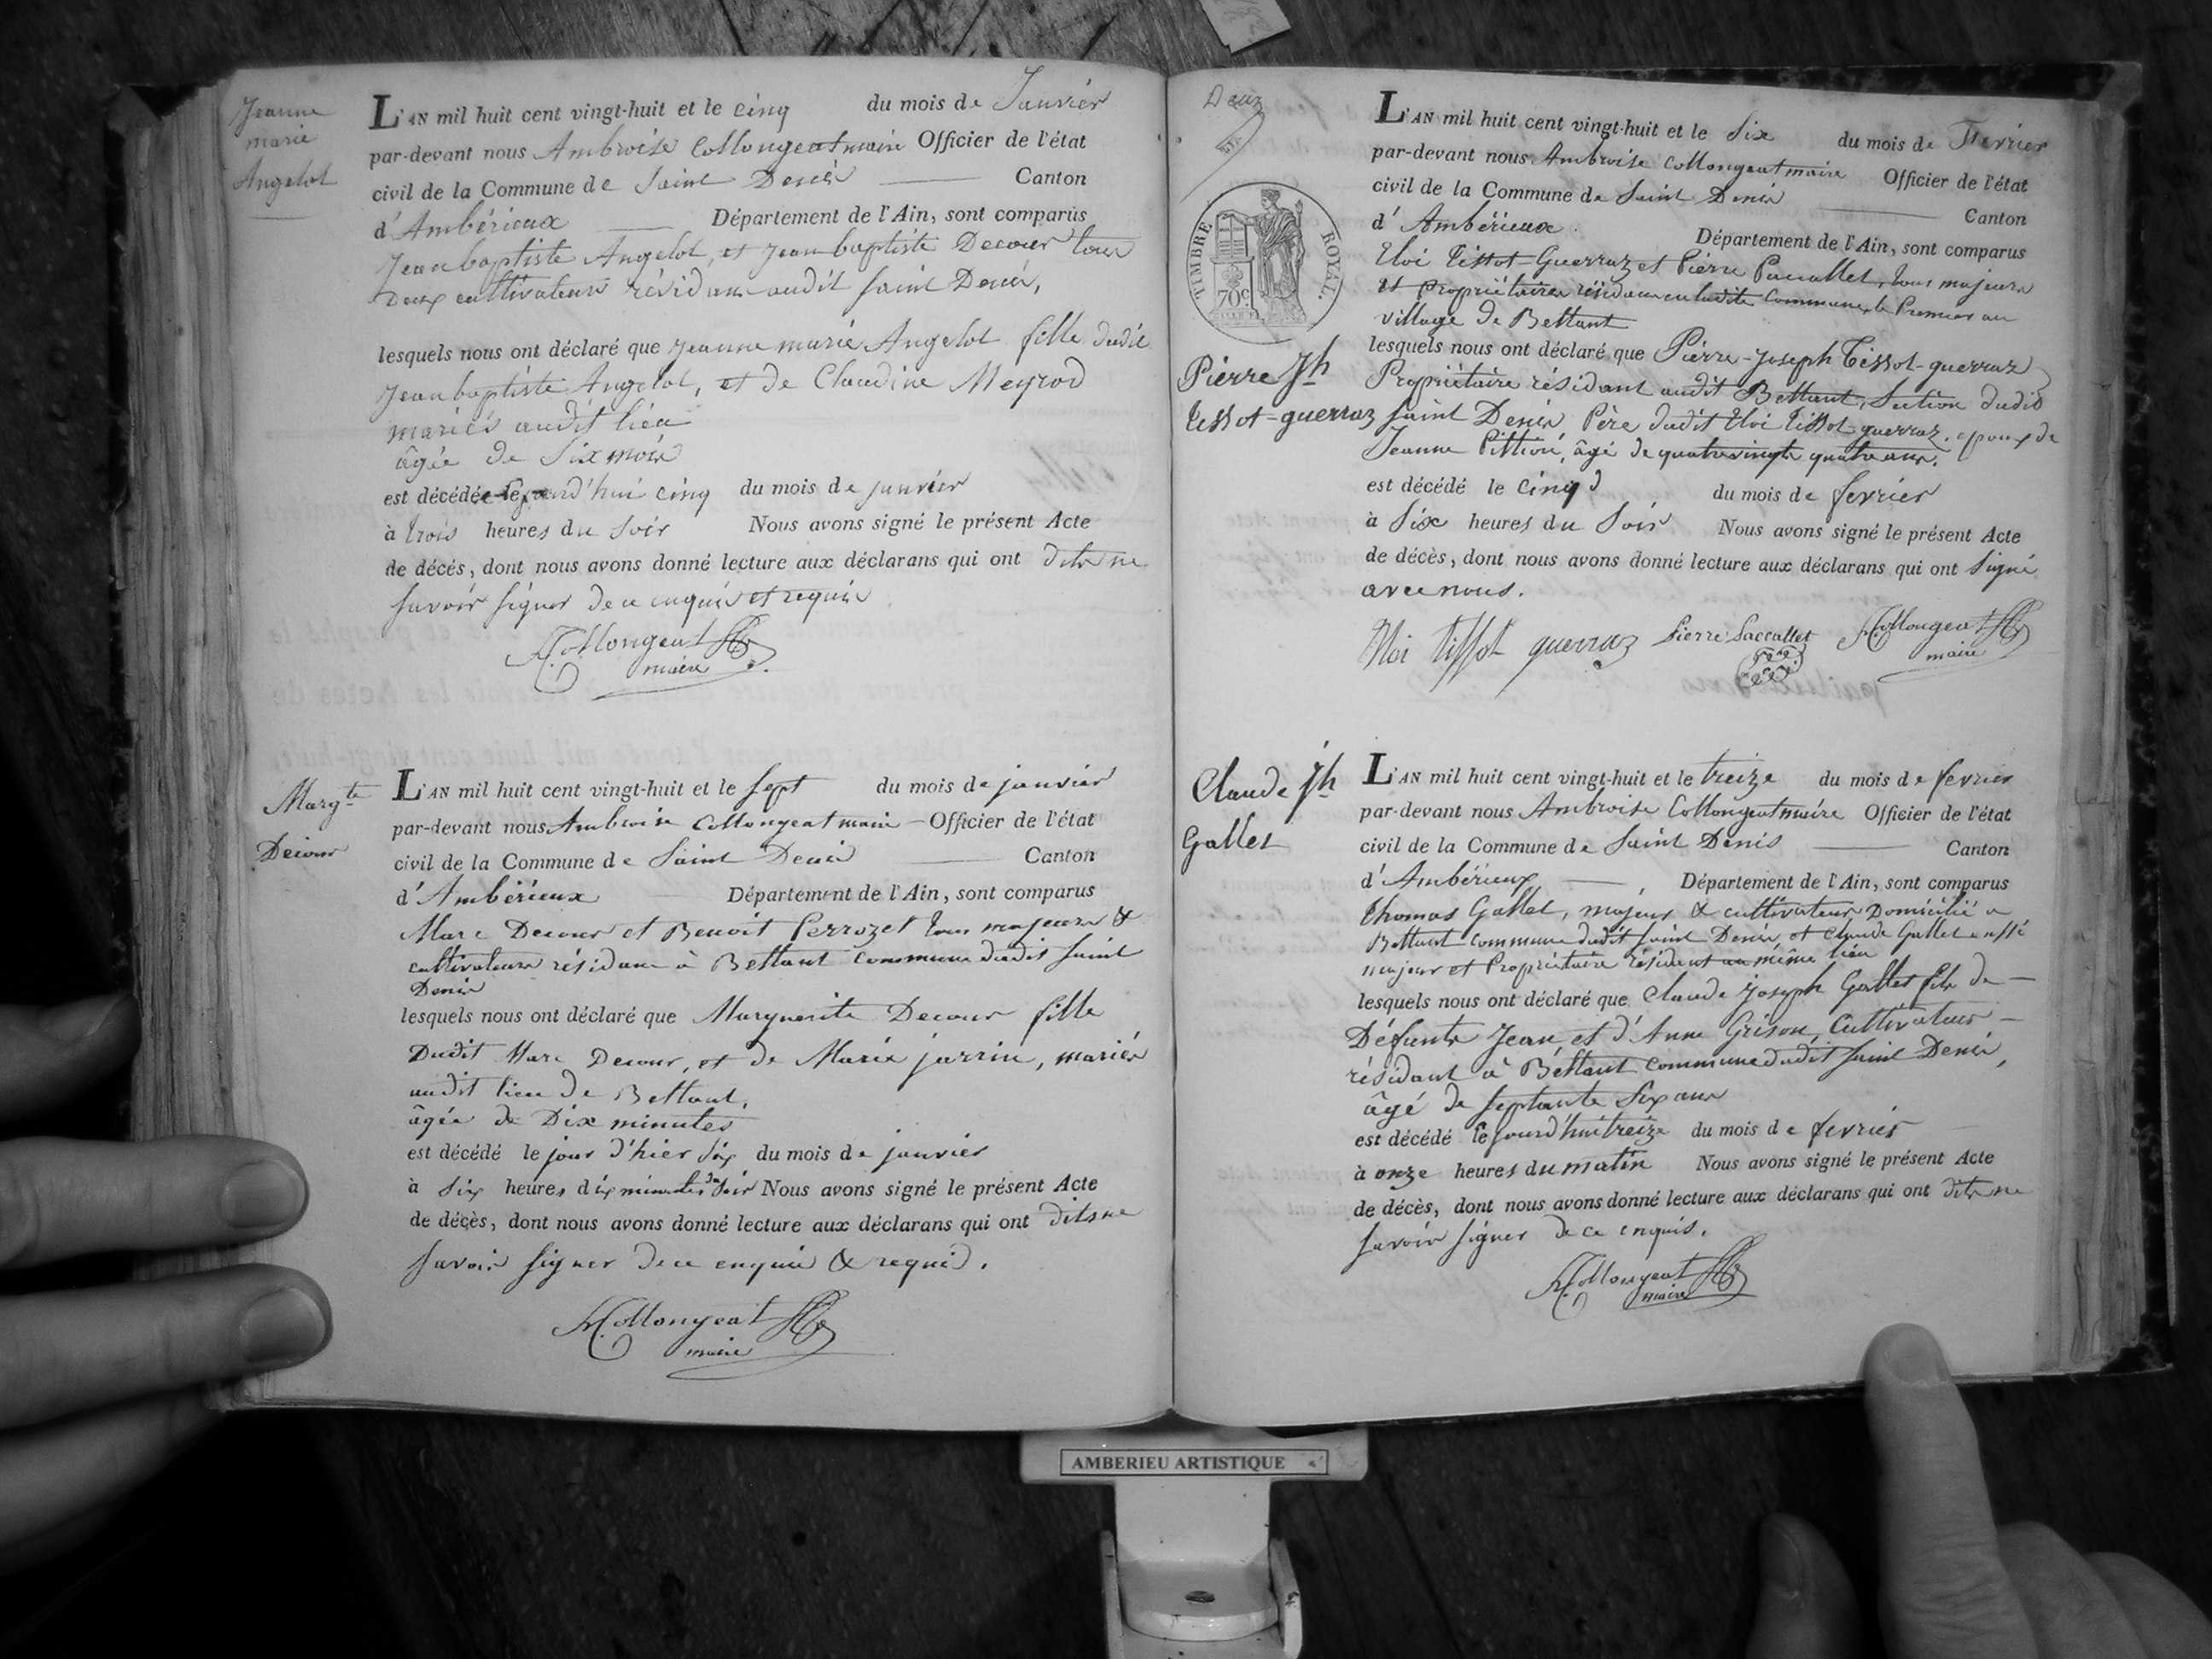 Jeanne
marie
Angelot
L'AN mil huit cent vingt-huit et le cinq du mois de Janvier
par-devant nous Ambroise Collongeat maire Officier de l'état
civil de la Commune de Saint Denis Canton
d'Ambérieux Département de l'Ain, sont comparus
Jean baptiste Angelot, et Jean baptiste Decour tous
Deux cultivateurs résidans audit Saint Denis,
lesquels nous ont déclaré que Jeanne marie Angelot fille dudit
Jean baptiste Angelot, et de Claudine Meyrod
mariés audit lieu
âgée de Six mois
est décédée le jourd'hui cinq du mois de janvier
à trois heures du Soir Nous avons signé le présent Acte
de décès, dont nous avons donné lecture aux déclarans qui ont dits ne
Savoir signer de ce enquis et requis
A. Collongeat
maire
Margte
Decour
L'AN mil huit cent vingt-huit et le Sept du mois de janvier
par-devant nous Ambroise Collongeat maire Officier de l'état
civil de la Commune de Saint Denis Canton
d'Ambérieux Département de l'Ain, sont comparus
Marc Decour et Benoit Perrozet tous majeurs &
cultivateurs résidans à Bettant commune dudit Saint
Denis
lesquels nous ont déclaré que Marguerite Decour fille
Dudit Marc Decour, et de Marie jarrin, mariés
audit lieu de Bettant,
âgée de Dix minutes
est décédé le jour d'hier Six du mois de janvier
à Six heures dix minutes du Soir Nous avons signé le présent Acte
de décès, dont nous avons donné lecture aux déclarans qui ont dits ne
Savoir signer de ce enquis & requis.
A. Collongeat
maire
Deux
TIMBRE ROYAL.
70c
Pierre Jh
Tissot-guerraz
L'AN mil huit cent vingt-huit et le Six du mois de Fevrier
par-devant nous Ambroise Collongeat maire Officier de l'état
civil de la Commune de Saint Denis Canton
d'Ambérieux Département de l'Ain, sont comparus
Eloi Tissot-Guerraz et Pierre Paccallet, tous majeurs
et Propriétaires résidans en ladite Commune, le Premier au
village de Bettant
lesquels nous ont déclaré que Pierre-Joseph Tissot-guerraz
Propriétaire résidant audit Bettant, Section dudit
Saint Denis Père dudit Eloi Tissot-guerraz, epoux de
Jeanne Pittion, âgé de quatrevingts quatre ans.
est décédé le Cinq du mois de fevrier
à Six heures du Soir Nous avons signé le présent Acte
de décès, dont nous avons donné lecture aux déclarans qui ont Signé
avec nous.
Eloi tissot guerraz Pierre Paccallet A. Collongeat
maire
Claude Jh
Gallet
L'AN mil huit cent vingt-huit et le treize du mois de fevrier
par-devant nous Ambroise Collongeat maire Officier de l'état
civil de la Commune de Saint Denis Canton
d'Ambérieux Département de l'Ain, sont comparus
Thomas Gallet, majeur & cultivateur Domicilié a
Bettant commune dudit Saint Denis, et Claude Gallet aussi
majeur et Propriétaire résident au même lieu
lesquels nous ont déclaré que Claude Joseph Gallet fils de
Défunts Jean et d'Anne Grison, Cultivateur
résidant à Bettant commune dudit Saint Denis,
âgé de Septante Six ans
est décédé le jourd'hui treize du mois de fevrier
à onze heures du matin Nous avons signé le présent Acte
de décès, dont nous avons donné lecture aux déclarans qui ont dits ne
Savoir signer de ce enquis.
A. Collongeat
maire
AMBERIEU ARTISTIQUE